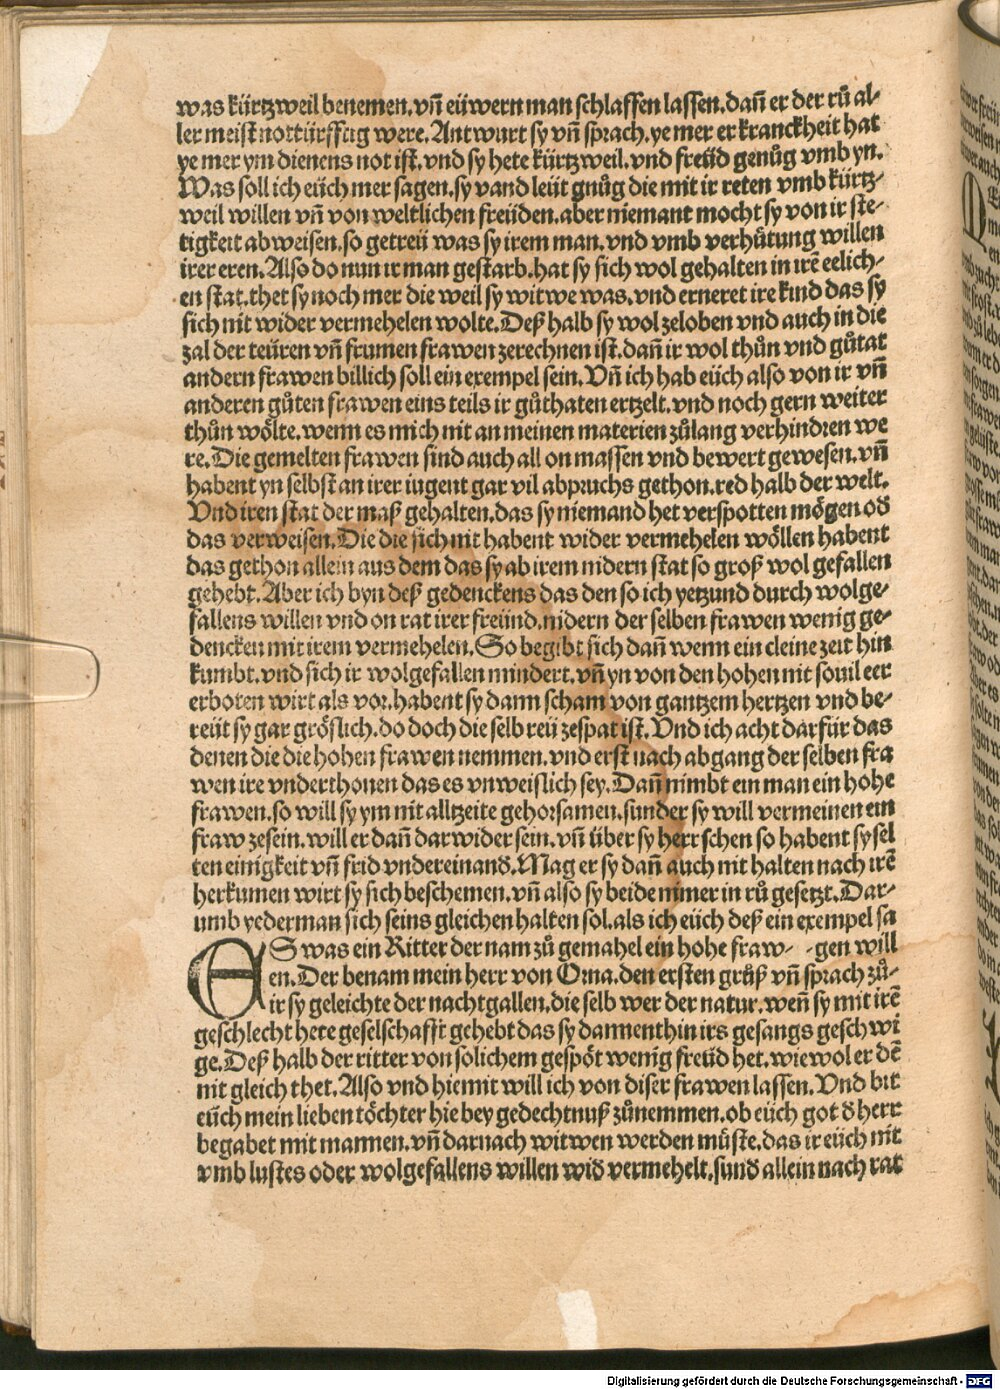 was kürtzweil benemen. vñ eüwern man schlaffen lassen. dañ er der rů al⸗
ler meist nottürfftig were. Antwurt sy vñ sprach. ye mer er kranckheit hat
ye mer ym dienens not ist. vnd sy hete kürtzweil. vnd freüd genůg vmb yn.
Was soll ich eüch mer sagen. sy vand leüt gnůg die mit ir reten vmb kürtz⸗
weil willen vñ von weltlichen freüden. aber niemant mocht sy von ir ste⸗
tigkeit abweisen. so getreü was sy irem man. vnd vmb verhůtung willen
irer eren. Also do nun ir man gestarb. hat sy sich wol gehalten in irē eelich⸗
en stat. thet sy noch mer die weil sy witwe was. vnd erneret ire kind das sy
sich nit wider vermehelen wolte. Deß halb sy wol zeloben vnd auch in die
zal der teüren vñ frumen frawen zerechnen ist. dañ ir wol thůn vnd gůtat
andern frawen billich soll ein exempel sein. Vñ ich hab eüch also von ir vñ
anderen gůten frawen eins teils ir gůthaten ertzelt. vnd noch gern weiter
thůn wölte. wenn es mich nit an meinen materien zůlang verhindren we
re. Die gemelten frawen sind auch all on massen vnd bewert gewesen. vñ
habent yn selbst an irer iugent gar vil abpruchs gethon. red halb der welt.
Vnd iren stat der maß gehalten. das sy niemand het verspotten mögen od̕
das verweisen. Die die sich nit habent wider vermehelen wöllen habent
das gethon allein aus dem das sy ab irem nidern stat so groß wol gefallen
gehebt. Aber ich byn deß gedenckens das den so ich yetzund durch wolge⸗
fallens willen vnd on rat irer freünd. nidern der selben frawen wenig ge⸗
dencken mit irem vermehelen. So begibt sich dañ wenn ein cleine zeit hin
kumbt. vnd sich ir wolgefallen mindert. vñ yn von den hohen nit souil eer
erboten wirt als vor. habent sy dann scham von gantzem hertzen vnd be⸗
reüt sy gar gröslich. do doch die selb reü zespat ist. Vnd ich acht darfür das
denen die die hohen frawen nemmen. vnd erst nach abgang der selben fra
wen ire vnderthonen das es vnweislich sey. Dañ nimbt ein man ein hohe
frawen. so will sy ym nit alltzeite gehorsamen. sunder sy will vermeinen ein
fraw zesein. will er dañ darwider sein. vñ über sy herrschen so habent sy sel
ten einigkeit vñ frid vndereinand̕. Mag er sy dañ auch nit halten nach irē
herkumen wirt sy sich beschemen. vñ also sy beide nimer in rů gesetzt. Dar⸗
umb yederman sich seins gleichen halten sol. als ich eüch deß ein exempel sa
ES was ein Ritter der nam zů gemahel ein hohe fraw⸗ ⸗gen will
en. Der benam mein herr von Oma. den ersten grůß vñ sprach zů⸗
ir sy geleichte der nachtgallen. die selb wer der natur. weñ sy mit irē
geschlecht hete geselschafft gehebt das sy dannenthin irs gesangs geschwi
ge. Deß halb der ritter von solichem gespöt wenig freüd het. wiewol er dē
nit gleich thet. Also vnd hiemit will ich von diser frawen lassen. Vnd bit
eüch mein lieben töchter hie bey gedechtnuß zůnemmen. ob eüch got d̕ herr
begabet mit mannen. vñ darnach witwen werden müste. das ir eüch nit
vmb lustes oder wolgefallens willen wid̕ vermehelt. sund̕ allein nach rat
Digitalisierung gefördert durch die Deutsche Forschungsgemeinschaft - DFG